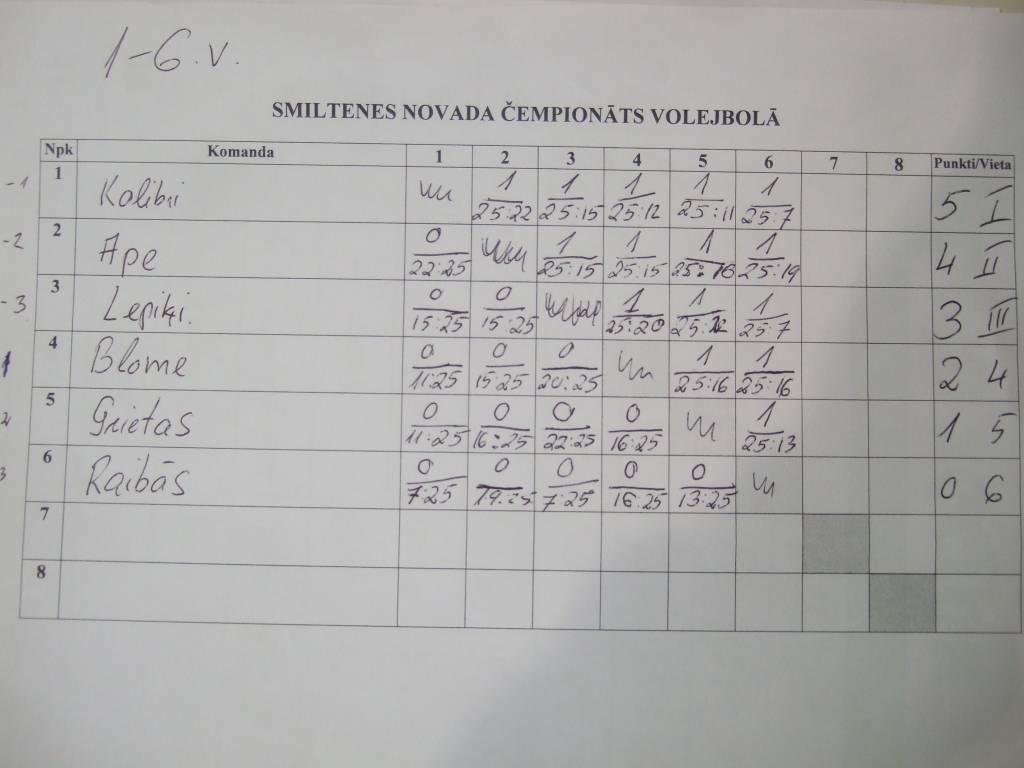 1-6.v.
SMILTENES NOVADA ČEMPIONĀTS VOLEJBOLĀ
Npk Komanda 1 2 3 4 5 6 7 8 Punkti/Vieta
-1 1 Kolibri 1 1 1 1 1 5 I
25:22 25:15 25:12 25:11 25:7
-2 2 Ape 0 1 1 1 1 4 II
22:25 25:15 25:15 25:16 25:19
-3 3 Lepiķi. 0 0 1 1 1 3 III
15:25 15:25 25:20 25:22 25:7
1 4 Blome 0 0 0 1 1 2 4
11:25 15:25 20:25 25:16 25:16
2 5 Grietas 0 0 0 0 1 1 5
11:25 16:25 22:25 16:25 25:13
3 6 Raibās 0 0 0 0 0 0 6
7:25 19:25 7:25 16:25 13:25
7
8